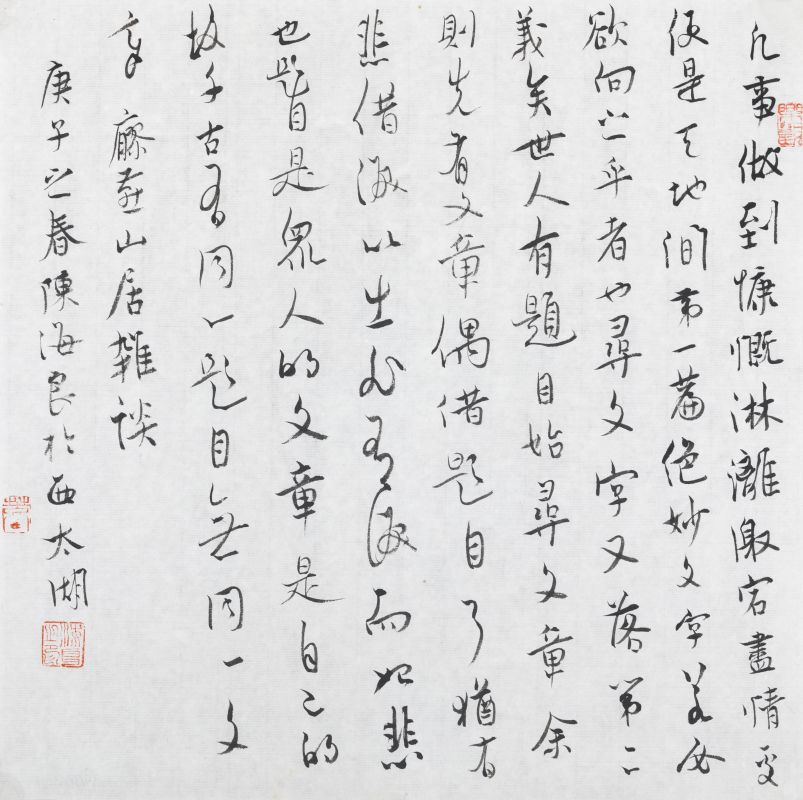 凡事做到慷慨淋灕激宕盡情處
便是天地間第一篇絕妙文字若必
欲向之乎者也尋文字又落第二
義矣世人有題目始尋文章余
則先有文章偶借題目耳猶有
悲借淚以出非有淚而始悲
也題目是眾人的文章是自己的
故千古有同一題目無同一文
章 廖燕山居雜談
庚子之春陳海良於西太湖